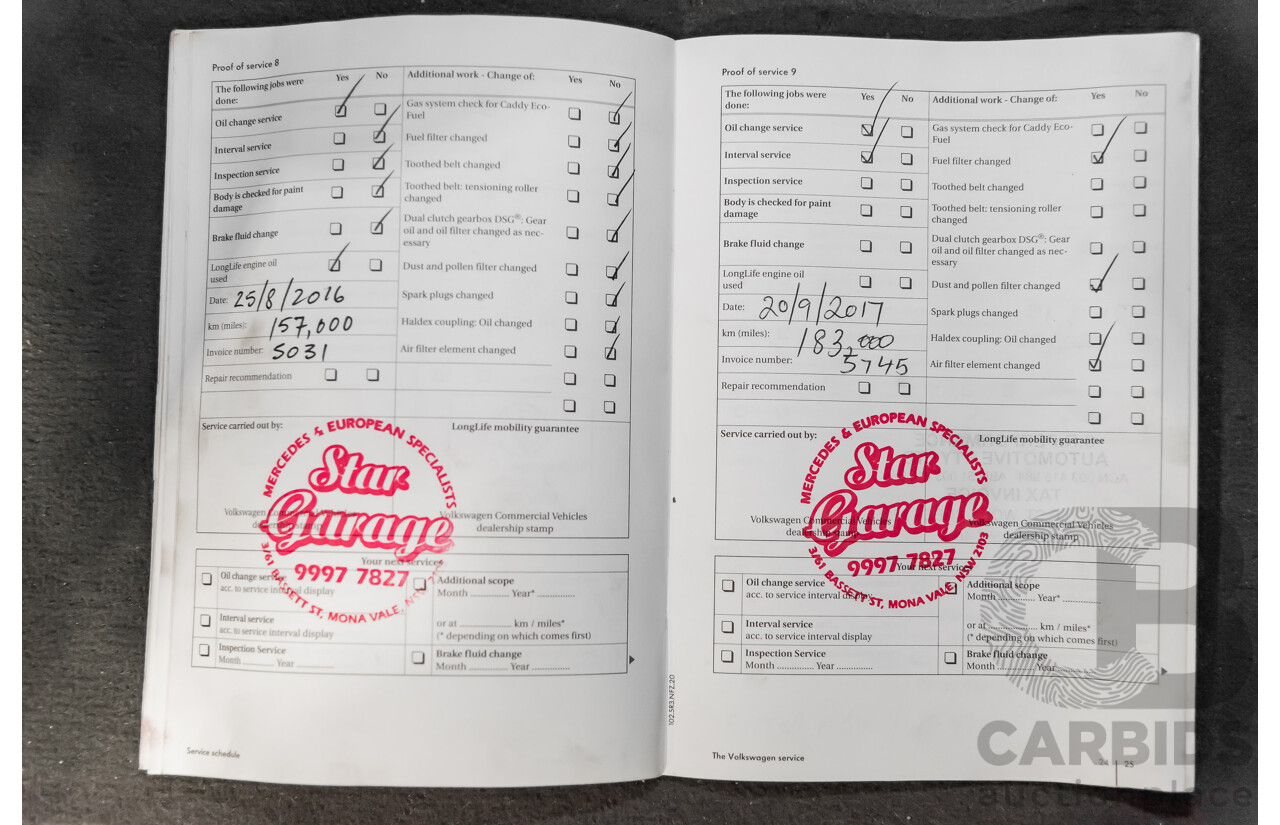 Proof of service 8
The following jobs were done: Yes No
Additional work - Change of: Yes No
Oil change service
Interval service
Inspection service
Body is checked for paint damage
Brake fluid change
LongLife engine oil used
Date: 25/8/2016
km (miles): 157,000
Invoice number: 5031
Repair recommendation
Gas system check for Caddy Eco-
Fuel
Fuel filter changed
Toothed belt changed
Toothed belt: tensioning roller
changed
Dual clutch gearbox DSG®: Gear
oil and oil filter changed as nec-
essary
Dust and pollen filter changed
Spark plugs changed
Haldex coupling: Oil changed
Air filter element changed
Service carried out by:
LongLife mobility guarantee
MERCEDES & EUROPEAN SPECIALISTS
Star
Garage
9997 7827
3/61 BASSETT ST, MONA VALE,
Volkswagen Commercial Vehicles
dealership stamp
Your next services
Oil change service
acc. to service interval display
Interval service
acc. to service interval display
Inspection Service
Month Year
Additional scope
Month Year*
or at km / miles*
(* depending on which comes first)
Brake fluid change
Month Year
Service schedule
102.5R3.NFZ.20
Proof of service 9
The following jobs were
done: Yes No
Additional work - Change of: Yes No
Oil change service
Interval service
Inspection service
Body is checked for paint
damage
Brake fluid change
LongLife engine oil
used
Date: 20/9/2017
km (miles): 183,000
Invoice number: 5745
Repair recommendation
Gas system check for Caddy Eco-
Fuel
Fuel filter changed
Toothed belt changed
Toothed belt: tensioning roller
changed
Dual clutch gearbox DSG®: Gear
oil and oil filter changed as nec-
essary
Dust and pollen filter changed
Spark plugs changed
Haldex coupling: Oil changed
Air filter element changed
Service carried out by:
LongLife mobility guarantee
MERCEDES & EUROPEAN SPECIALISTS
Star
Garage
9997 7827
3/61 BASSETT ST, MONA VALE, NSW 2103
Volkswagen Commercial Vehicles
dealership stamp
Volkswagen Commercial Vehicles
dealership stamp
Your next services
Oil change service
acc. to service interval display
Interval service
acc. to service interval display
Inspection Service
Month Year
Additional scope
Month Year*
or at km / miles*
(* depending on which comes first)
Brake fluid change
Month Year
The Volkswagen service
24 | 25
CARBIDS